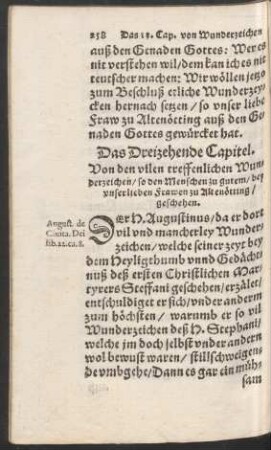 158 Das 13. Cap. von Wunderzeichen
auß den Genaden Gottes: Wer es
nit verstehen wil/dem kan ich es nit
teutscher machen: Wir wöllen jetzo
zum Beschluß etliche Wunderzey-
cken hernach setzen/ so vnser liebe
Fraw zu Altenötting auß den Ge-
naden Gottes gewürcket hat.
Das Dreizehende Capitel.
Von den vilen treffenlichen Wun-
derzeichen/ so den Menschen zu gutem/ bey
vnserlieben Frawen zu Altenötting/
geschehen.
August. de
Ciuita. Dei
lib.22.ca.8.
DEr H. Augustinus/ da er dort
vil vnd mancherley Wunder-
zeichen/ welche seiner zeyt bey
dem Heyligthumb vnnd Gedächt-
nuß deß ersten Christlichen Mar-
tyrers Steffani geschehen/ erzälet/
entschuldiget er sich/ vnder anderm
zum höchsten/ warumb er so vil
Wunderzeichen deß H. Stephani/
welche jm doch selbst vnder andern
wol bewust waren/ stillschweigens
de vmbgehe/ Dann es gar ein müh-
sam